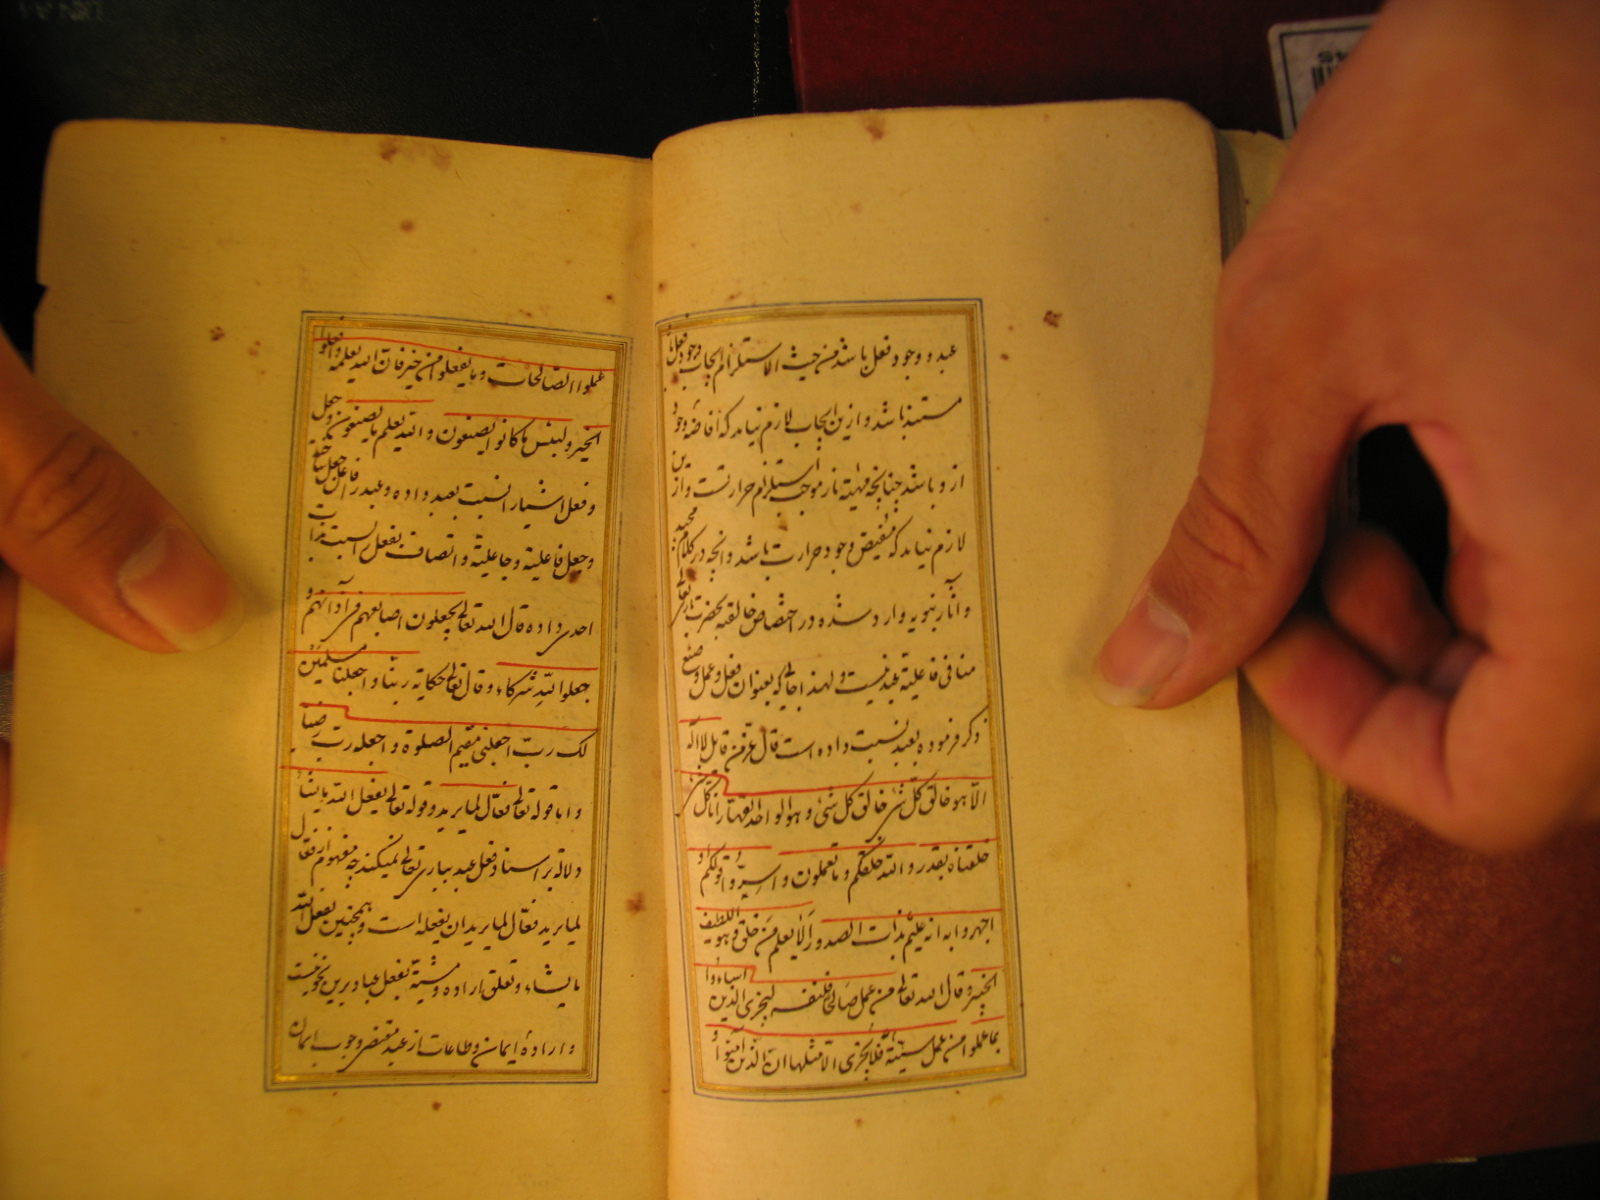 عبد و وجود فعل باشد من حیث الاستلزام ایجاب وجود فعل را
مستند باشد و ازین ایجاب لازم نیاید که افاضهٔ وجود
ازو باشد چنانچه مهیّة نار موجب استلزام حرارتست و ازین
لازم نیاید که مفیض وجود حرارت باشد و آنچه در کلام مجید
و آثار نبویه وارد شده در اختصاص خالقیه بحضرت باری تعالی
منافی فاعلیة عبد نیست و لهذا جائی که بعنوان فعل و عمل و صنع
ذکر فرموده بعبد نسبت داده است قال عز من قایل لا اله
الا هو خالق کل شئ خالق کل شئ و هو الواحد القهار انا کل شئ
خلقناه بقدر و الله خلقکم و ما تعملون و اسرّوا قولکم او
اجهروا به انه علیم بذات الصدور الا یعلم من خلق و هو اللطیف
الخبیر و قال الله تعالی من عمل صالحا فلنفسه لیجزی الذین اساءوا
بما عملوا من عمل سیّئة فلا یجزی الا مثلها ان الذین آمنوا و
عملوا الصالحات و ما یفعلوا من خیر فان الله یعلمه وافعلوا
الخیر و لبئس ما کانوا یصنعون و الله یعلم ما یصنعون و جعل
و فعل اشیا را نسبت بعبد داده و عبد را فاعل
و جعل فاعلیة و جاعلیة و اتصاف بفعل را نسبت بذات
احدی داده قال الله تعالی یجعلون اصابعهم فی آذانهم و
جعلوا لله شرکاء و قال تعالی حکایة ربنا و اجعلنا مسلمین
لک ربّ اجعلنی مقیم الصلوة و اجعله ربّ رضیا
و اما قوله تعالی فعّال لما یرید و قوله تعالی یفعل الله ما یشاء
دلالة بر اسناد فعل عبد بباری تعالی نمیکند چه مفهوم از فعّال
لما یرید فعّال لما یرید ان یفعله است و همچنین یفعل الله
ما یشاء و تعلق اراده و مشیّة بفعل عباد برین نحو نیست
و ارادهٔ ایمان و طاعات از عبد مقتضی وجوب ایمان